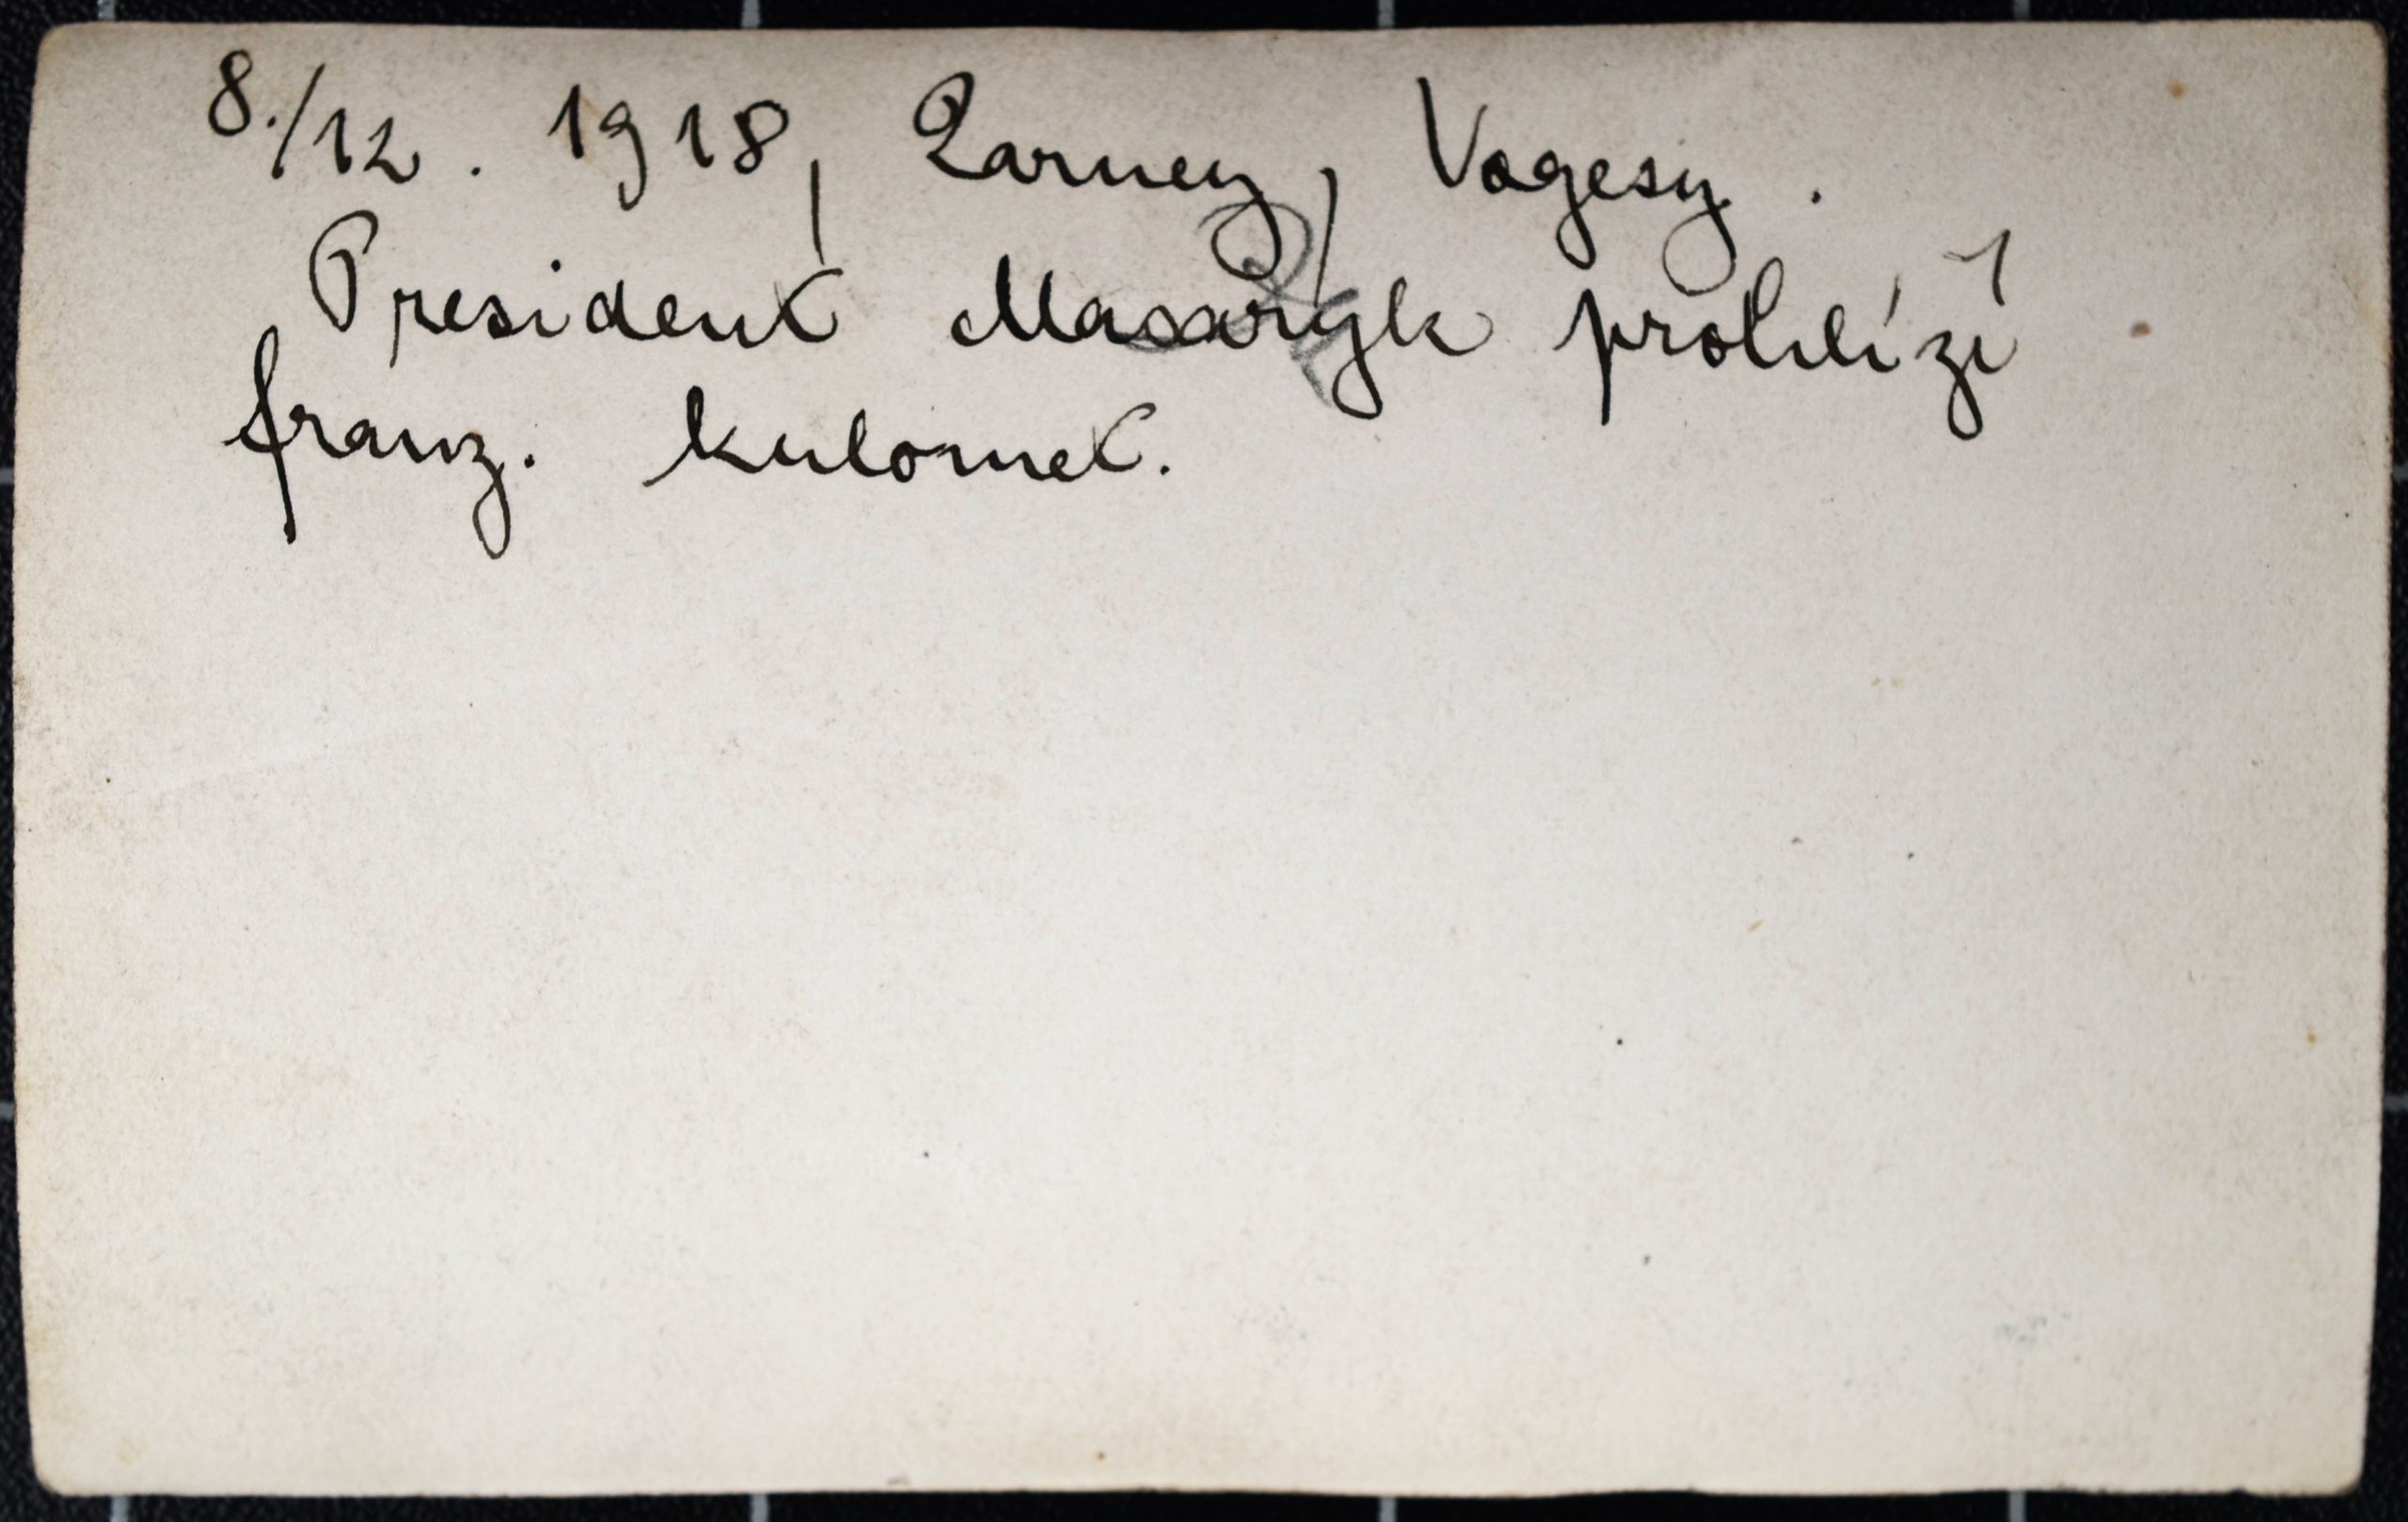 8./12. 1918, Darney, Vogesy.
President Masaryk prohlíží
franz. kulomet.